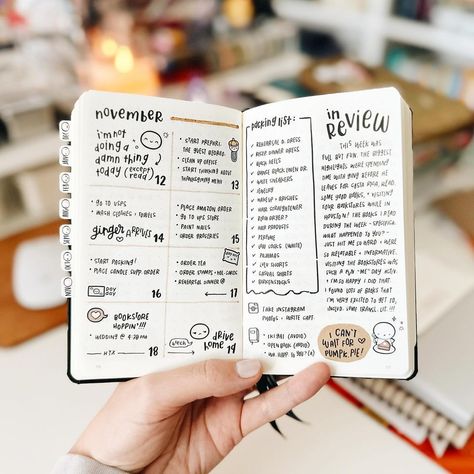 november
i'm not
doing a
damn thing
today (except
read)
12
• START PREPARI
• CLEAN UP OFFICE
• START THINKING ABOUT
THANKSGIVING MENU
13
• GO TO USPS
• WASH CLOTHES + TOWELS
ginger ARRIVES
14
• PLACE AMAZON ORDER
• GO TO UPS STORE
• PAINT NAILS
• ORDER GROCERIES
15
• START PACKING!
• PLACE CANDLE SUPP. ORDER
PAY
DAY
16
• ORDER TEA
• ORDER STAMPS
• REHEARSAL DINNER
17
BOOKSTORE
HOPPIN'!!!
WEDDING @ 4:30 PM
HTX
18
drive
home
19
packing list:
REHEARSAL D. DRESS
REHE. DINNER DRESS
BLACK HEELS
WHITE SNEAKERS
JEWELRY
MAKEUP + BRUSHES
HAIR STRAIGHTENER
BOOK ORDER?
HAIR PRODUCTS
PERFUME
PAJAMAS
CASUAL SHIRTS
BIRKENSTOCKS
TAKE INSTAGRAM
PHOTOS + WRITE CAPT.
OPEN BOOK (AUDIO)
in
REVIEW
THIS WEEK WAS
FULL OF FUN. THE BIGGEST
HIGHLIGHTS WERE SPENDING
TIME WITH GING BEFORE HE
LEAVES FOR COSTA RICA, READ
SOME GOOD BOOKS, + VISITING
FOUR BOOKSTORES WHILE IN
HOUSTON! THE BOOKS I READ
DURING THE WEEK - SPECIFICALLY
WHAT HAPPENED TO YOU? -
JUST HIT ME SO HARD + WERE
SO RELATABLE + INFORMATIVE.
VISITING THE BOOKSTORES WAS
SUCH A FUN "ME" DAY ACTIV.
+ I'M SO HAPPY I DID THAT.
I FOUND LOTS OF BOOKS THAT
I'M VERY EXCITED TO GET TO,
I CAN'T
WAIT FOR
PUMPK. PIE!